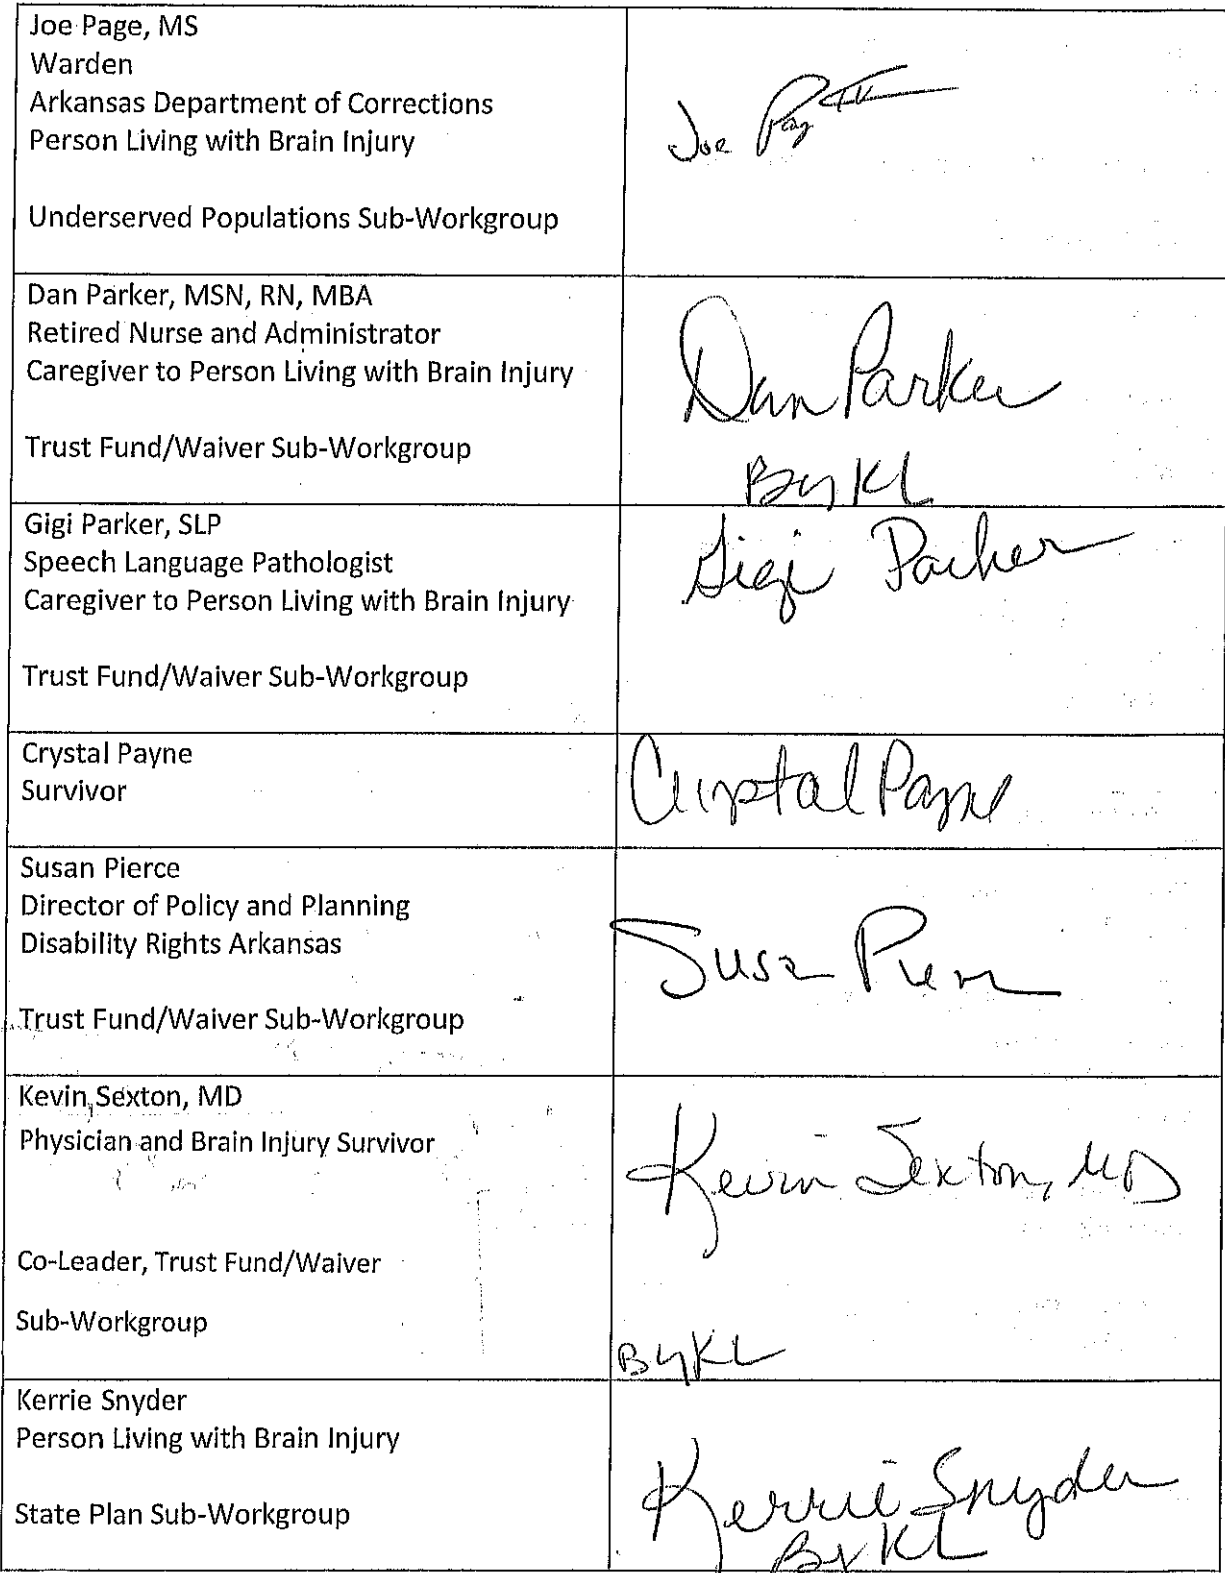 Joe Page, MS
Warden
Arkansas Department of Corrections
Person Living with Brain Injury
Underserved Populations Sub-Workgroup
Joe Page III
Dan Parker, MSN, RN, MBA
Retired Nurse and Administrator
Caregiver to Person Living with Brain Injury
Trust Fund/Waiver Sub-Workgroup
Dan Parker
By KL
Gigi Parker, SLP
Speech Language Pathologist
Caregiver to Person Living with Brain Injury
Trust Fund/Waiver Sub-Workgroup
Gigi Parker
Crystal Payne
Survivor
Crystal Payne
Susan Pierce
Director of Policy and Planning
Disability Rights Arkansas
Trust Fund/Waiver Sub-Workgroup
Susan Pierce
Kevin Sexton, MD
Physician and Brain Injury Survivor
Co-Leader, Trust Fund/Waiver
Sub-Workgroup
Kevin Sexton, MD
By KL
Kerrie Snyder
Person Living with Brain Injury
State Plan Sub-Workgroup
Kerrie Snyder
By KL